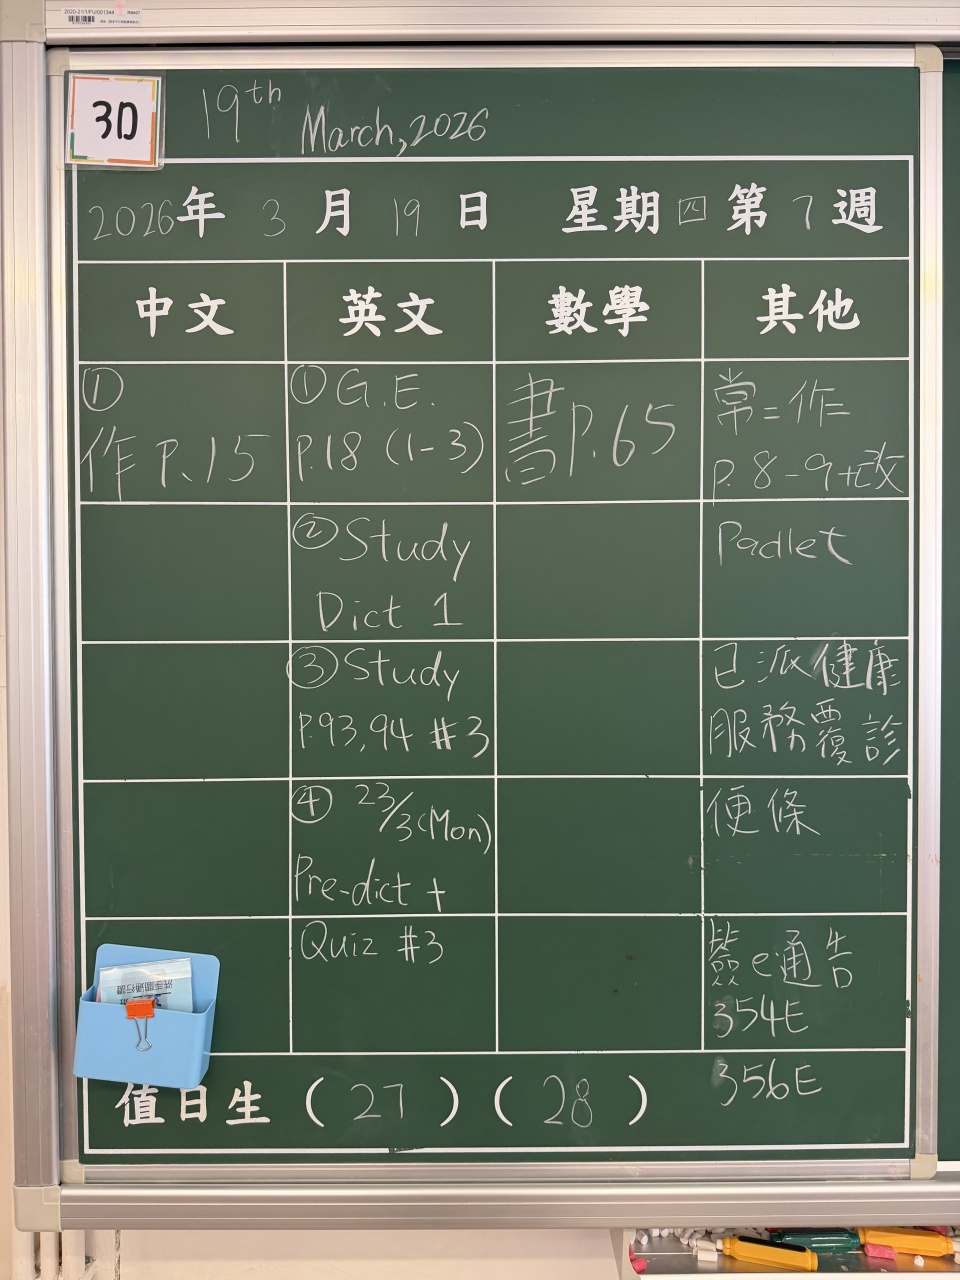 2020-21/1/FU/001344
3D
19th March, 2026
2026年 3月 19日 星期四 第7週
中文 英文 數學 其他
①
作 P.15
① G.E.
P.18 (1-3)
② Study
Dict 1
③ Study
P.93,94 #3
④ 23/3(Mon)
Pre-dict +
Quiz #3
書P.65
常=作
P.8-9+改
Padlet
已派健康
服務覆診
便條
簽e通告
354E
356E
洗手間通行證
值日生 (27) (28)